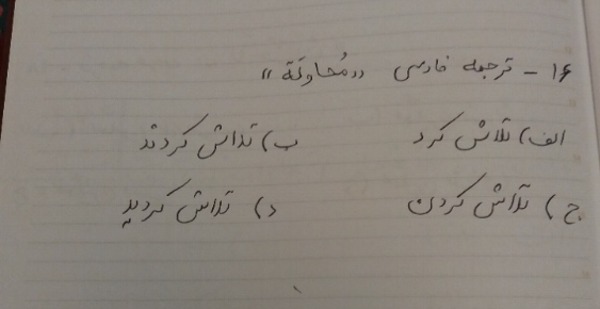 ۱۶ - ترجمه فارسی «مُحاوَلَة»
الف) تلاش کرد ب) تلاش کردند
ج) تلاش کردن د) تلاش کردید